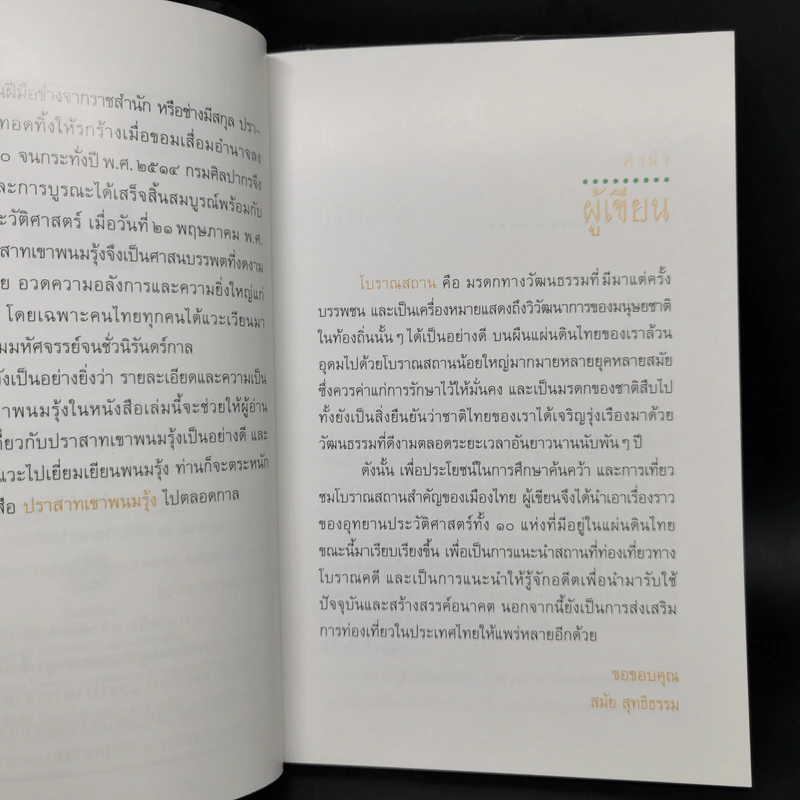 นฝีมือช่างจากราชสำนัก หรือช่างมีสกุล ปรา-
ทอดทิ้งให้รกร้างเมื่อขอมเสื่อมอำนาจลง
๐ จนกระทั่งปี พ.ศ. ๒๕๑๔ กรมศิลปากรจึง
ละการบูรณะได้เสร็จสิ้นสมบูรณ์พร้อมกับ
ะวัติศาสตร์ เมื่อวันที่ ๒๑ พฤษภาคม พ.ศ.
สาทเขาพนมรุ้งจึงเป็นศาสนบรรพตที่งดงาม
ย อวดความอลังการและความยิ่งใหญ่แก่
โดยเฉพาะคนไทยทุกคนได้แวะเวียนมา
มมหัศจรรย์จนชั่วนิรันดร์กาล
วังเป็นอย่างยิ่งว่า รายละเอียดและความเป็น
าพนมรุ้งในหนังสือเล่มนี้จะช่วยให้ผู้อ่าน
กี่ยวกับปราสาทเขาพนมรุ้งเป็นอย่างดี และ
แวะไปเยี่ยมเยียนพนมรุ้ง ท่านก็จะตระหนัก
สือ ปราสาทเขาพนมรุ้ง ไปตลอดกาล
คำนำ
ผู้เขียน
โบราณสถาน คือ มรดกทางวัฒนธรรมที่มีมาแต่ครั้ง
บรรพชน และเป็นเครื่องหมายแสดงถึงวิวัฒนาการของมนุษยชาติ
ในท้องถิ่นนั้น ๆ ได้เป็นอย่างดี บนผืนแผ่นดินไทยของเราล้วน
อุดมไปด้วยโบราณสถานน้อยใหญ่มากมายหลายยุคหลายสมัย
ซึ่งควรค่าแก่การรักษาไว้ให้มั่นคง และเป็นมรดกของชาติสืบไป
ทั้งยังเป็นสิ่งยืนยันว่าชาติไทยของเราได้เจริญรุ่งเรืองมาด้วย
วัฒนธรรมที่ดีงามตลอดระยะเวลาอันยาวนานนับพัน ๆ ปี
ดังนั้น เพื่อประโยชน์ในการศึกษาค้นคว้า และการเที่ยว
ชมโบราณสถานสำคัญของเมืองไทย ผู้เขียนจึงได้นำเอาเรื่องราว
ของอุทยานประวัติศาสตร์ทั้ง ๑๐ แห่งที่มีอยู่ในแผ่นดินไทย
ขณะนี้มาเรียบเรียงขึ้น เพื่อเป็นการแนะนำสถานที่ท่องเที่ยวทาง
โบราณคดี และเป็นการแนะนำให้รู้จักอดีตเพื่อนำมารับใช้
ปัจจุบันและสร้างสรรค์อนาคต นอกจากนี้ยังเป็นการส่งเสริม
การท่องเที่ยวในประเทศไทยให้แพร่หลายอีกด้วย
ขอขอบคุณ
สมัย สุทธิธรรม